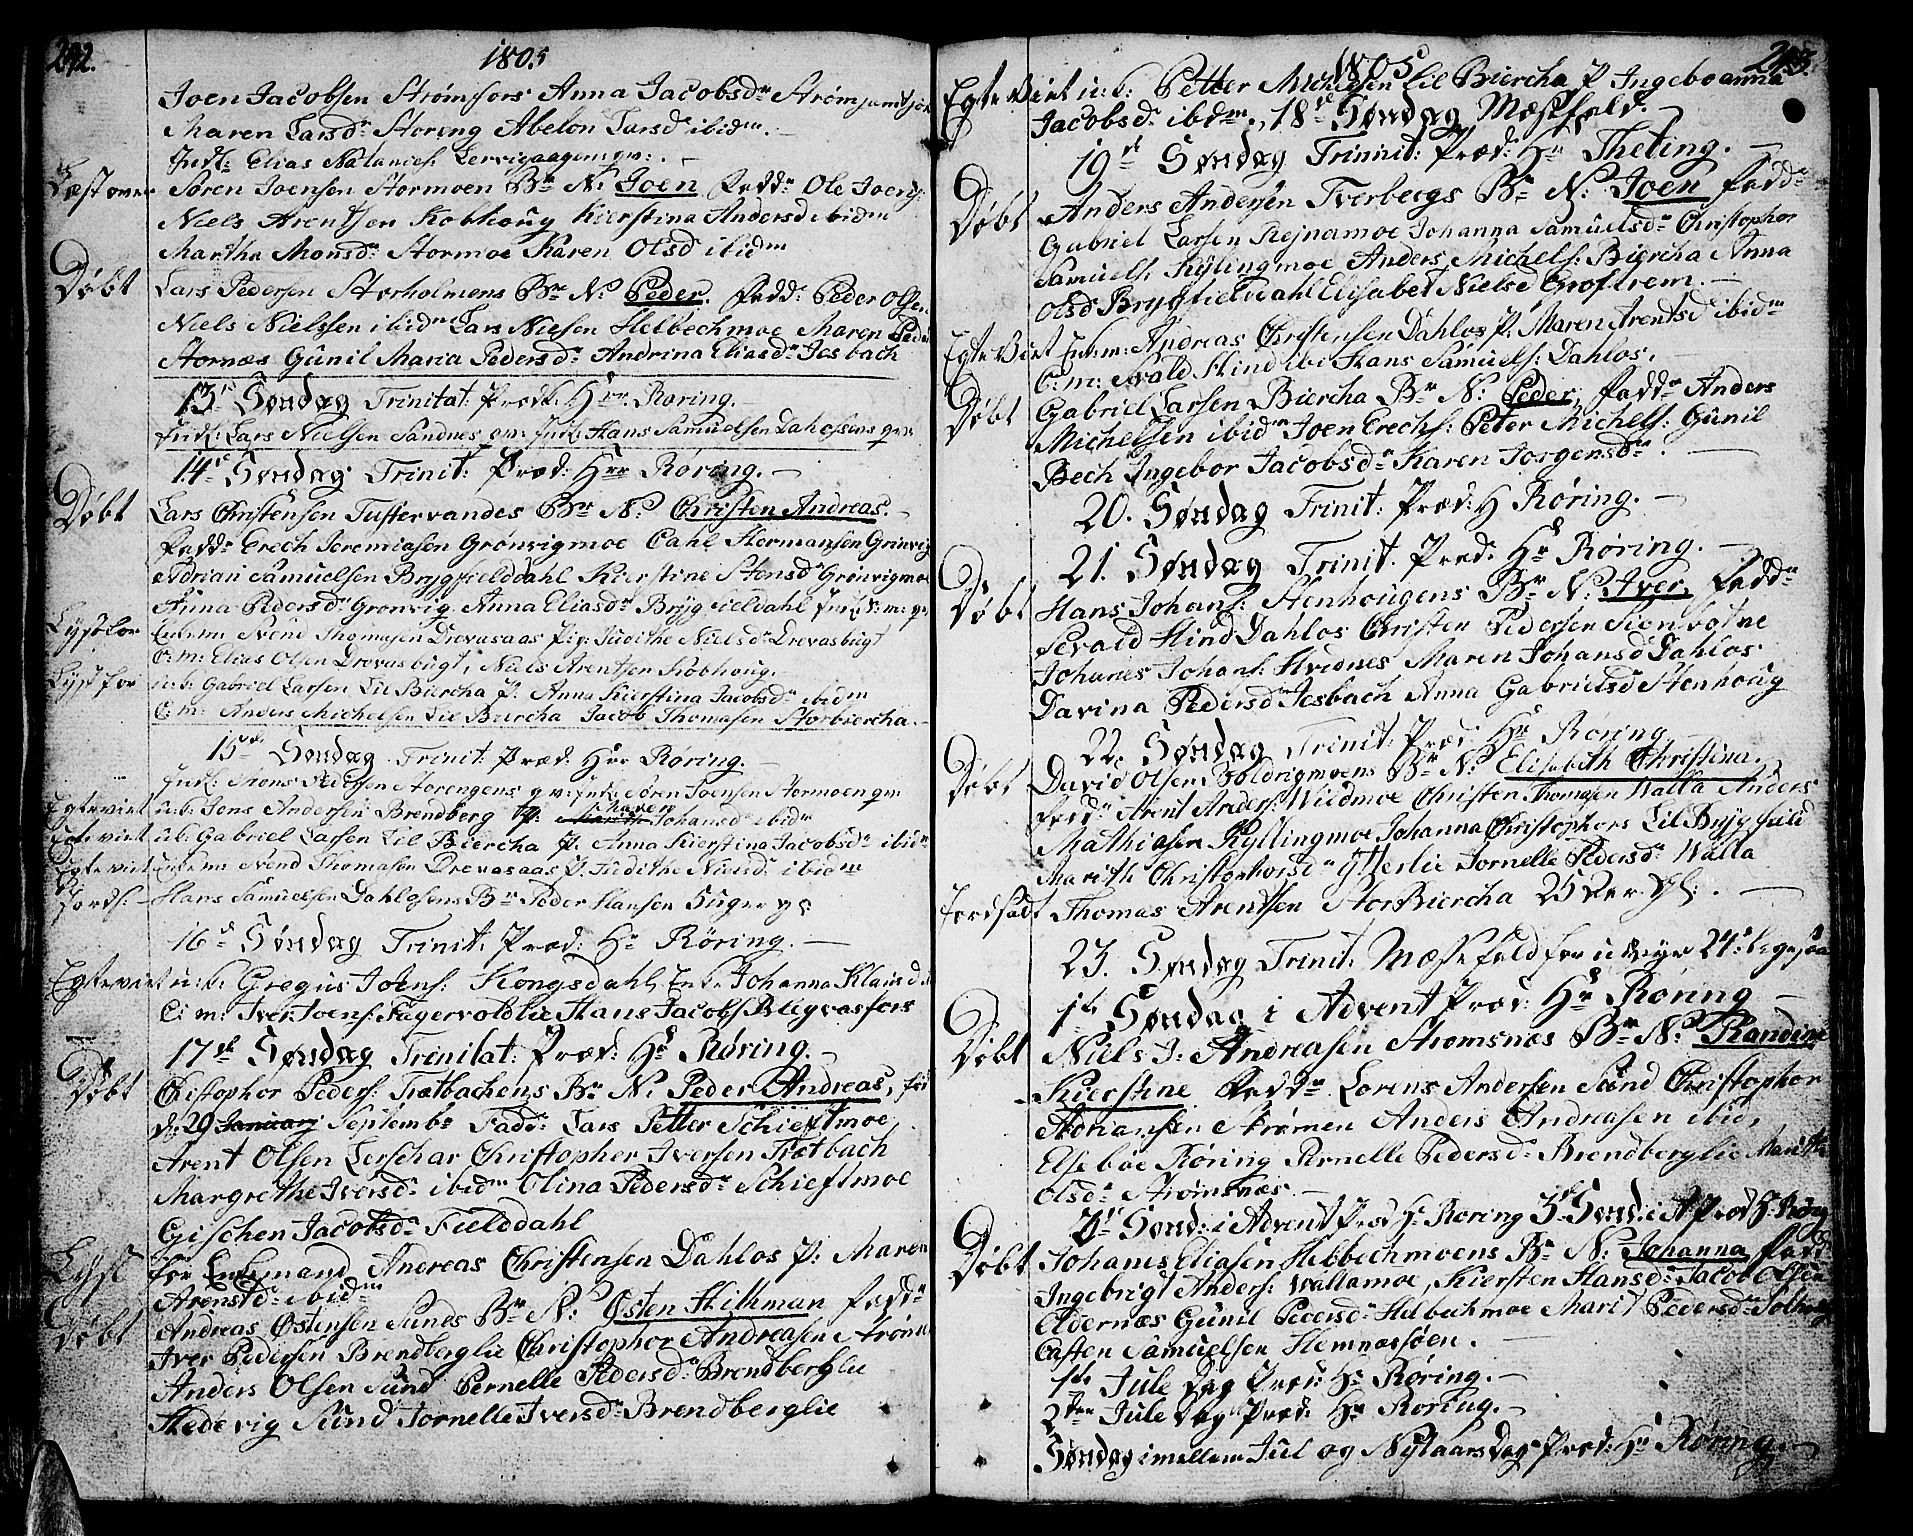 242.
1805
Joen Jacobsen Strømfors Anna Jacobsdr
Maren Larsdr Storing Abelon Larsd ibidm.
Indl: Elias Nataniels: Lervigaagens qv:
Læst over Søren Joensen Stormoen Bn N: Joen Fadd: Ole Joens:
Niels Arentsen Kobhoug Kierstina Andersd ibidm
Martha Monsdr Stormoe Karen Olsd ibidm
Døbt Lars Pedersen Storholmens Bn N: Peder. Fadd: Peder Olsen
Niels Nielssen ibidm Lars Nielsen Helbechmoe Maren
Stornæs Gunil Maria Pedersdr Andrina Eliasdr Jesbach
13de Søndag Trinitat: Præd: Hrr Røring.
Indl: Lars Nielsen Sandnes qv: Indl: Hans Samuelsen Dahlosens qv:
14de Søndag Trinit: Præd: Hrr Røring.
Døbt Lars Christensen Tustervandes Bn N: Christen Andreas.
Fadd: Erech Jeremiasen Grønvigmoe Dahl Hermansen Grønvig
Adrian Samuelsen Brygfielddahl Kierstine Stensdr Grønvigmoe
Anna Pedersdr Grønvig Anna Eliasdr Brygfieldahl
Lyst for Enkem Svend Thomasen Drevasaas Pig: Judithe Nielsdr Drevasbugt
C: m: Elias Olsen Drevasbugt, Niels Arentsen Kobhoug.
Lyst for u: k: Gabriel Larsen Lil Biercha P: Anna Kierstina Jacobsdr ibidm
C: m: Anders Michelsen Lil Biercha Jacob Thomasen Storbiercha.
15de Søndag Trinit: Præd: Hrr Røring.
Indl: Mons Nielssen Storengens qv: Indl: Søren Joensen Stormoen qv:
Egteviet u: k: Jens Andersen Brendberg P: Maren Johansd ibidm
Egteviet u: k: Gabriel Larsen Lil Biercha P. Anna Kierstina Jacobsdr ibidm
Egteviet Enkem Svend Thomasen Drevasaas P. Judithe Nielsdr ibidm
Jords: Hans Samuelsen Dahlosens Bn Peder Hansen 5 uger gl
16de Søndag Trinit: Præd: Hr Røring.
Egteviet u: k: Gregus Joens: Kongsdahl, Enke Johanna Klausdr
C: m: Iver Joens: Fagervoldlie Hans Jacobs: Blegvasfors
17de Søndag Trinitat: Præd: Hr Røring.
Døbt Christophor Peders: Trætbachens Bn N: Peder Andreas, fød
d: 29 Januari Septembr Fadd: Lars Petter Schieftmoe
Arent Olsen Lerschar Christopher Iversen Trætbach
Margrethe Iversdr ibidm Olina Pedersdr Schieftmoe
Gischen Jacobsdr Fielddahl
Lyst for Enkemand Andreas Christensen Dahlos P: Maren
Arenstdr ibidm
Døbt Andreas Østensen Sunds Bn N: Østen Hishman Fadd:
Iver Pedersen Brendberglie Christophor Andreasen
Anders Olsen Sund Pernelle Pedersdr Brendberglie
Hedevig Sund Tornelle Iversdr Brendberglie
243.
1805
Egte Viet u: k: Petter Michelsen Lil Biercha P Ingebor anna
Jacobsd: ibidm. 18de Søndag Mæssefald.
19de Søndag Trinnit: Præd: Hr Theting.
Døbt Anders Andersen Tverbergs Bn N: Joen Fadd:
Gabriel Larsen Rejnamoe Johanna Samuelsdr Christophor
Samuels: Kylingmoe Anders Michels: Biercha Anna
Olsd Brygfieldahl Elisabet Nielsd Groftrem.
Egte Viet Enkm: Andreas Christensen Dahlos P: Maren Arentsd ibidm
C: m: Svald Hind ibi Hans Samuels: Dahlos.
Døbt Gabriel Larsen Biercha Bn N: Peder, Fadd: Anders
Michelsen ibidm Joen Erechs: Peter Michels: Gunil
Bech Ingebor Jacobsdr Karen Jorgensdr.
20. Søndag Trinit: Præd: H Røring.
21. Søndag Trinit. Præd: Hr Røring.
Døbt Hans Johans: Stenhougens Bn N: Iver, Fadd:
Sevald Hind Dahlos Christen Pedersen Stenbotne
Johanes Johans: Hvidnes Maren Johansd Dahlos
Davina Pedersd Jesbach Anna Gabrielsd Stenhoug
22. Søndag Trinit: Præd: Hr Røring.
Døbt David Olsen Foldrigmoens Bn N: Elisabeth Christina.
Fadd: Arent Anders: Widmoe Christen Thomasen Walla Anders
Mathiasen Kyllingmoe Johanna Christophors Lil Brygfield
Marith Christophorsdr Ytterlie Tornelle Pedersdr Walla
Jordfæst Thomas Arentsen StorBiercha 25 Aar gl:
23. Søndag Trinit: Mæssefald for uveyr 24: ligesaa
1te Søndag i Advent Præd: Hr Røring
Døbt Niels J: Andreasen Stromsnæs Bn N: Randine
Kierstine Fadd: Lorens Andersen Sund Christophor
Adriansen Strømen Anders Andreasen ibid,
Else boe Røring Pernelle Pedersdr Brendberglie Marithe
Olsdr Strømsnæs.
2de Sønd: i Advent Præd Hr Røring 3de Sønd: i A Præd H: Røring
Døbt Johanis Eliasen Helbechmoens Bn N: Johanna Fadd:
Ingebrigt Anders: Wallamoe, Kiersten Hansdr Jacob Olsen
Aldernæs Gunil Pedersdr Helbechmoe Marit Pedersdr
Casten Samuelsen Hemnæssøen.
1te Jule Dag Præd: Hr Røring.
2den Jule Dag Præd: Hr Røring.
Søndag imellem Jul og Nytaarsdag Præd: Hr Røring.